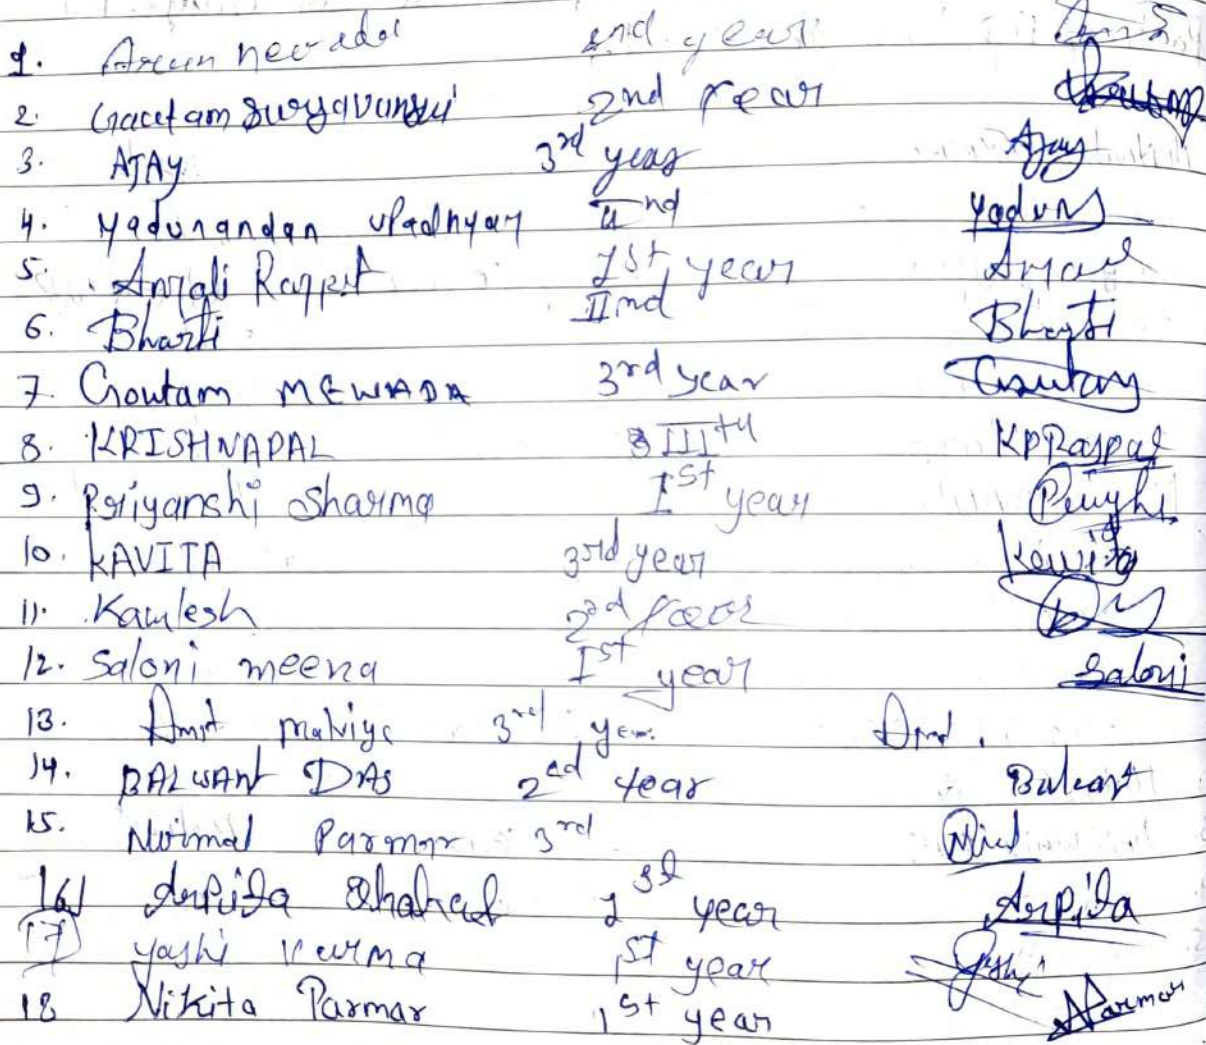 1. Arun nevada 2nd year
2. Gautam Suryavanshi 2nd year Gautam
3. AJAY 3rd year Ajay
4. Yadunandan Upadhyay IInd Yadun
5. Anjali Rajput 1st year Anjali
6. Bharti IInd Bharti
7. Goutam MEWADA 3rd year Goutam
8. KRISHNAPAL IIIrd KPRajpal
9. Priyanshi Sharma Ist year
10. KAVITA 3rd year Kavita
11. Kamlesh 2nd year
12. Saloni meena Ist year Saloni
13. Amit malviya 3rd year Amit.
14. BALWANT DAS 2nd year Balwant
15. Nirmal Parmar 3rd
16) Arpita 1st year Arpita
17 yashi verma 1st year yashi
18 Nikita Parmar 1st year NParmar